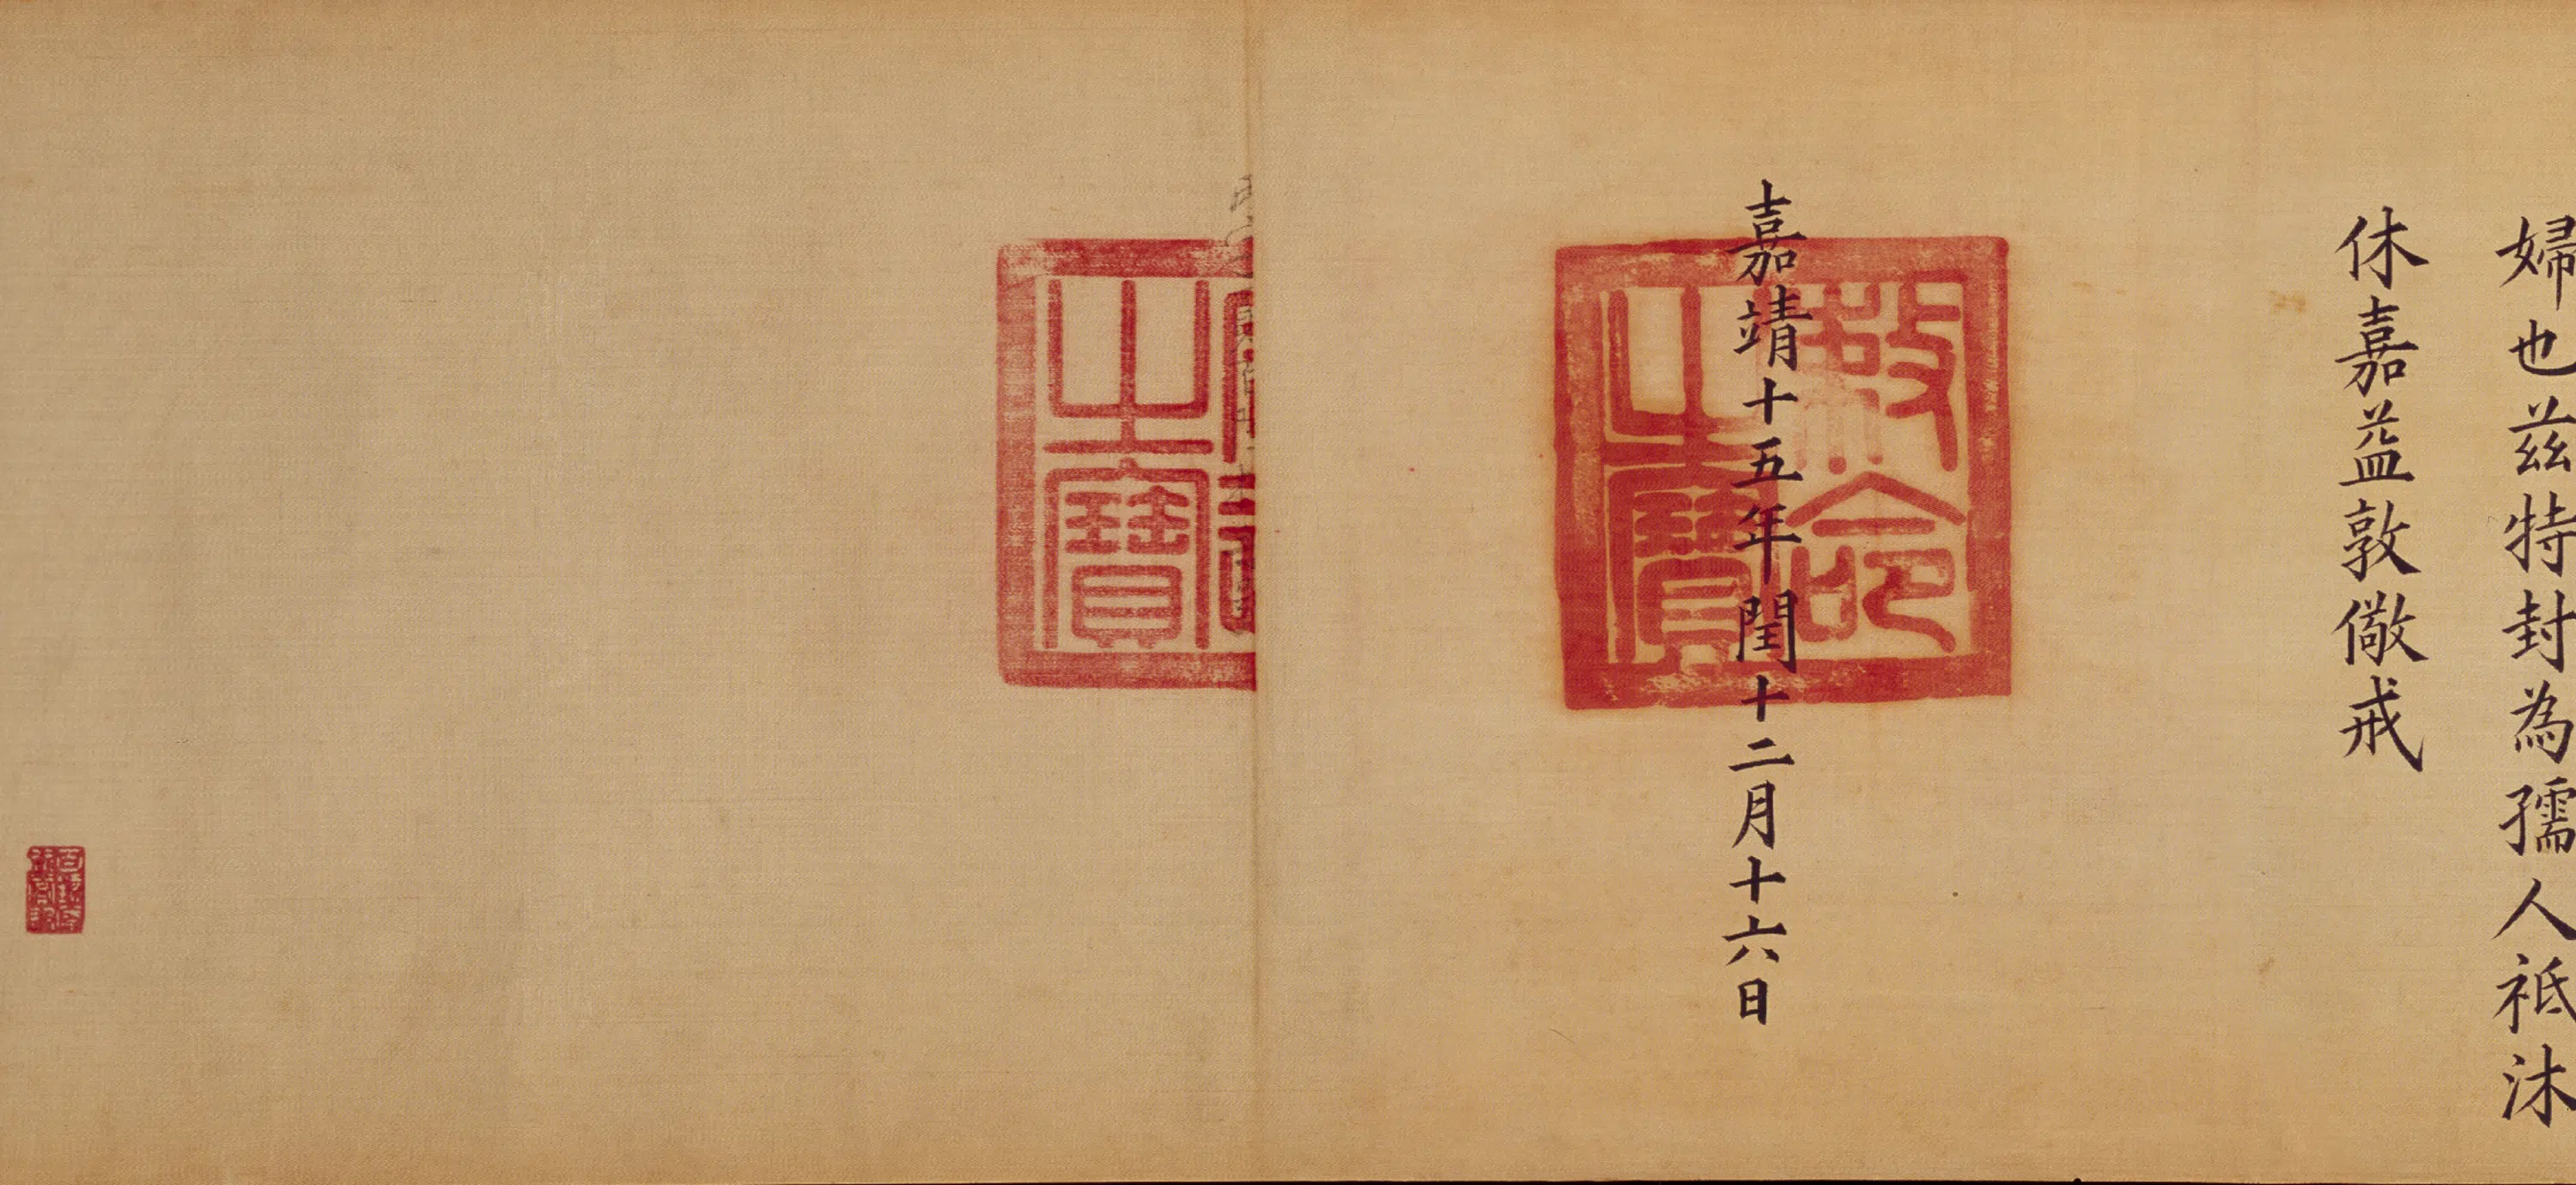 婦也茲特封為孺人祇沐
休嘉益敦儆戒
嘉靖十五年閏十二月十六日
敕命
之寶
之寶